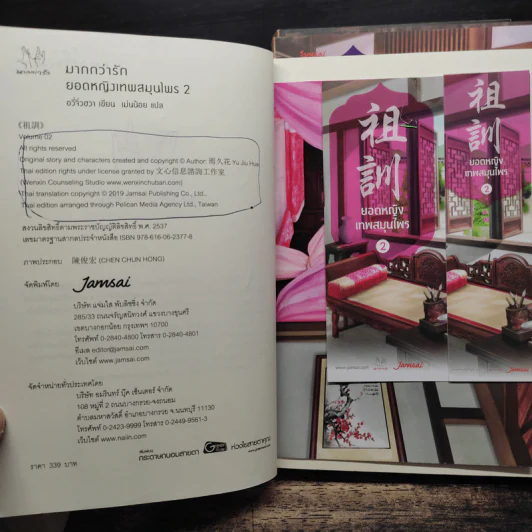 มากกว่ารัก
มากกว่ารัก
ยอดหญิงเทพสมุนไพร 2
อวี๋จิ่วฮวา เขียน เม่นน้อย แปล
《祖訓》
Volume 02
All rights reserved
Original story and characters created and copyright © Author: 雨久花 Yu Jiu Hua
Thai edition rights under license granted by 文心信息諮詢工作室
(Wenxin Counseling Studio www.wenxinchuban.com)
Thai translation copyright © 2019 Jamsai Publishing Co., Ltd.,
Thai edition arranged through Pelican Media Agency Ltd., Taiwan
สงวนลิขสิทธิ์ตามพระราชบัญญัติลิขสิทธิ์ พ.ศ. 2537
เลขมาตรฐานสากลประจำหนังสือ ISBN 978-616-06-2377-8
ภาพประกอบ 陳俊宏 (CHEN CHUN HONG)
จัดพิมพ์โดย Jamsai
บริษัท แจ่มใส พับลิชชิ่ง จำกัด
285/33 ถนนจรัญสนิทวงศ์ แขวงบางขุนศรี
เขตบางกอกน้อย กรุงเทพฯ 10700
โทรศัพท์ 0-2840-4800 โทรสาร 0-2840-4801
อีเมล editor@jamsai.com
เว็บไซต์ www.jamsai.com
จัดจำหน่ายทั่วประเทศโดย
บริษัท อมรินทร์ บุ๊ค เซ็นเตอร์ จำกัด
108 หมู่ที่ 2 ถนนบางกรวย-จงถนอม
ตำบลมหาสวัสดิ์ อำเภอบางกรวย จ.นนทบุรี 11130
โทรศัพท์ 0-2423-9999 โทรสาร 0-2449-9561-3
เว็บไซต์ www.naiin.com
ราคา 339 บาท
กระดาษถนอมสายตา
ห่วงใยสายตาคุณ
Jamsai
祖訓
ยอดหญิง
เทพสมุนไพร
2
Jamsai
祖訓
ยอดหญิง
เทพสมุนไพร
2
Jamsai